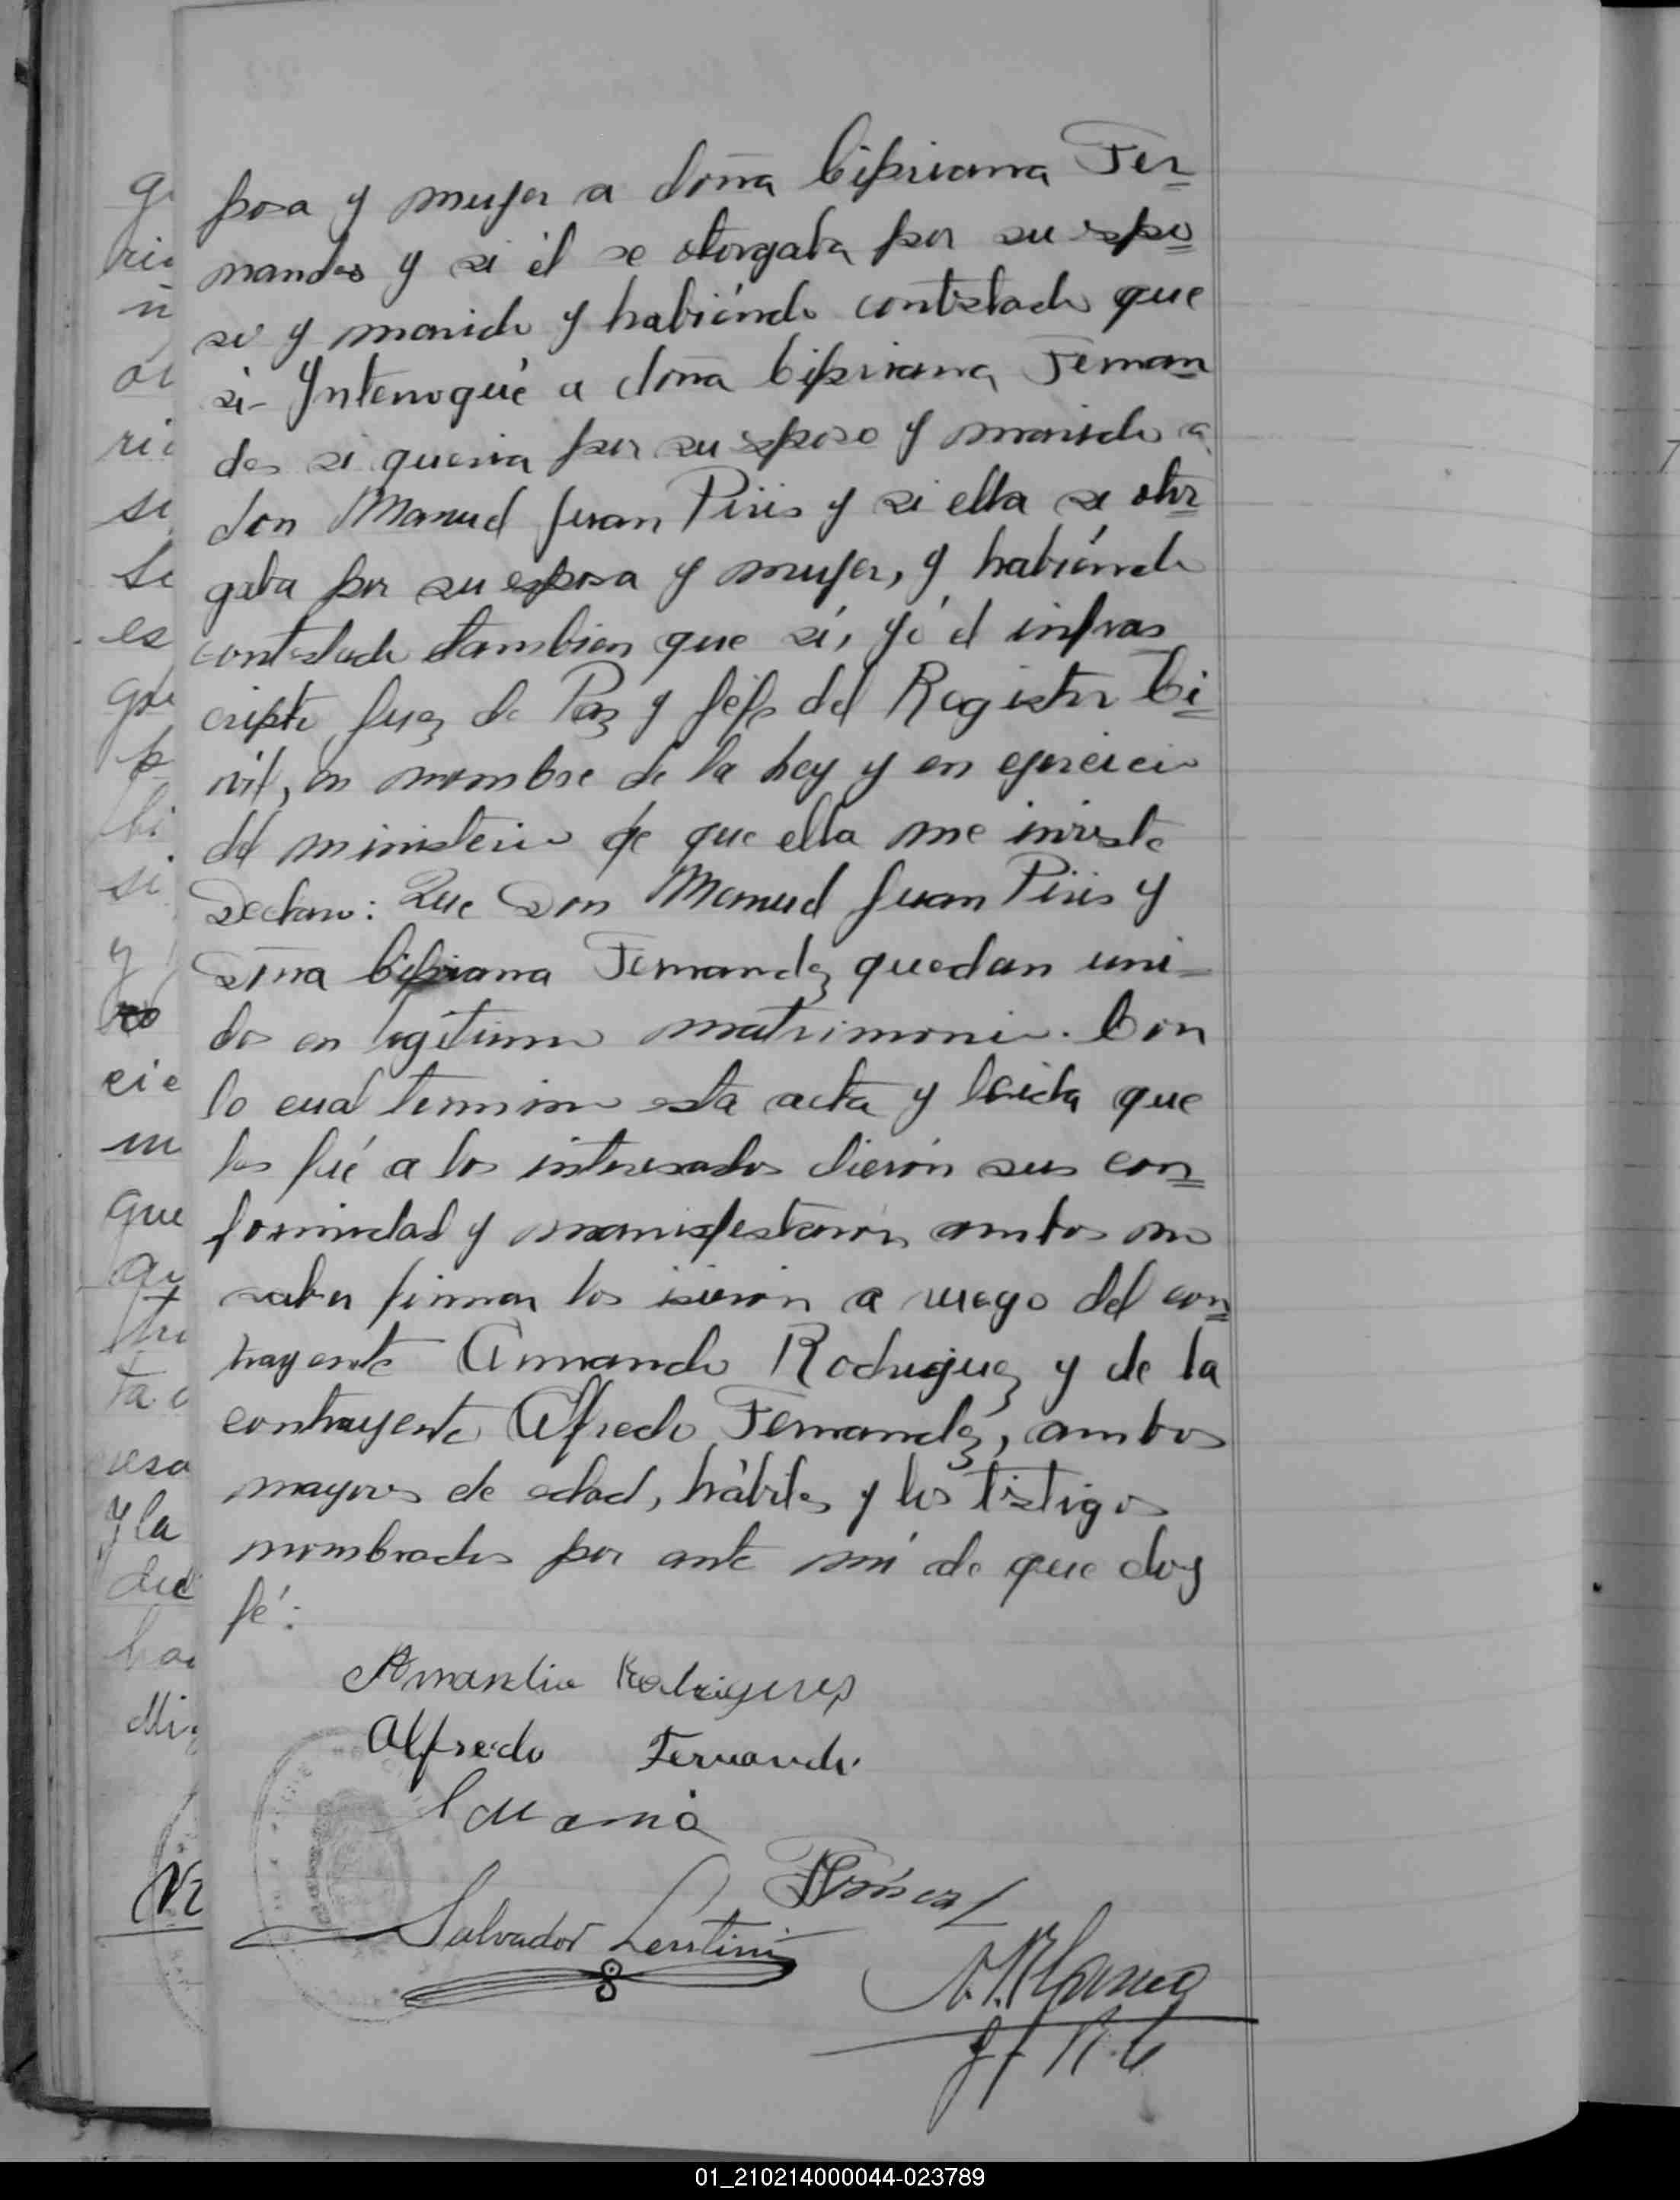 posa y mujer a doña Cipriana Fer
nandes y si él se otorgaba por su espo
so y marido y habiéndo contestado que
si- Ynterrogué a doña Cipriana Fernan
des si queria por su esposo y marido a
don Manuel Juan Piris y si ella se otor
gaba por su esposa y mujer, y habiéndo
contestado tambien que sí, yó el infras
cripto Juez de Paz y Jefe del Registro Ci
vil, en nombre de la Ley y en ejercicio
del ministerio de que ella me inviste
Declaro: Que Don Manuel Juan Piris y
Doña Cipriana Fernandez quedan uni-
dos en legitimo matrimonio. Con
lo cual termino esta acta y leida que
les fué a los interesados dierón sus con
formidad y manifestarón ambos no
saber firmar los isieron a ruego del con
trayente Armando Rodriguez y de la
contrayente Alfredo Fernandéz, ambos
mayores de edad, hábiles y los testigos
nombrados por ante mí de que doy
fé:
Rodriguez
Alfredo Fernande
Salvador Lentini